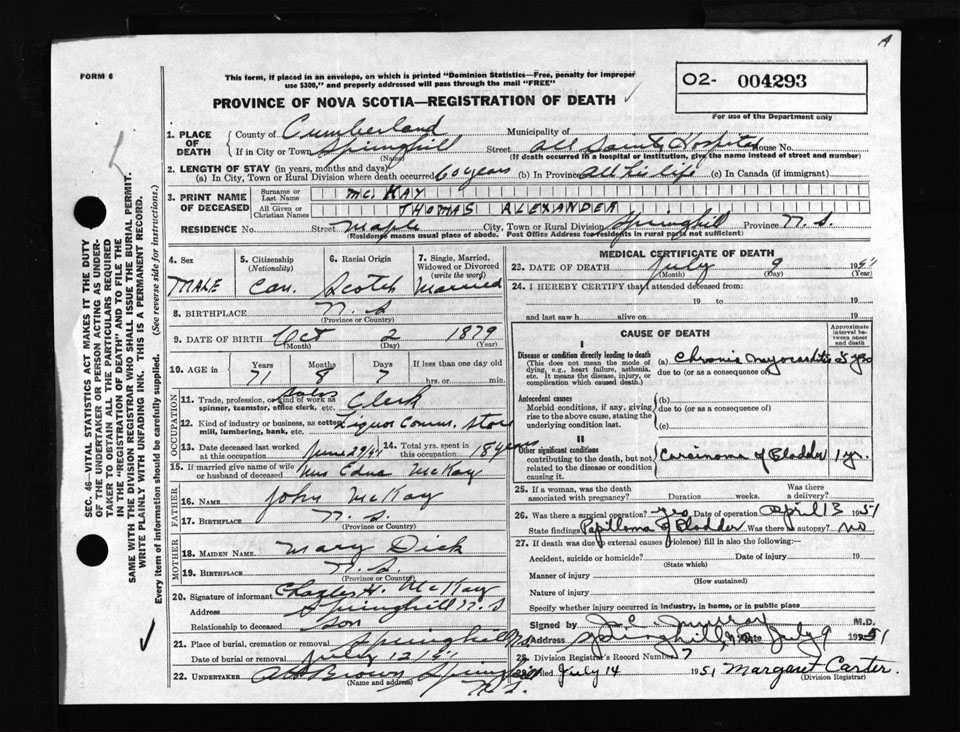 A
FORM 6
This form, if placed in an envelope, on which is printed "Dominion Statistics—Free, penalty for improper
use $300," and properly addressed will pass through the mail "FREE"
O2- 004293
For use of the Department only
PROVINCE OF NOVA SCOTIA—REGISTRATION OF DEATH
1. PLACE OF DEATH
County of Cumberland Municipality of
If in City or Town Springhill Street All Saints Hospital House No.
(Name) (If death occurred in a hospital or institution, give the name instead of street and number)
2. LENGTH OF STAY (in years, months and days)
(a) In City, Town or Rural Division where death occurred 60 years (b) In Province All his life (c) In Canada (if immigrant)
3. PRINT NAME OF DECEASED
Surname or Last Name Mc.KAY
All Given or Christian Names THOMAS ALEXANDER
RESIDENCE No. Street Maple City, Town or Rural Division Springhill Province N.S.
(Residence means usual place of abode. Post Office Address for residents in rural parts not sufficient)
4. Sex MALE
5. Citizenship (Nationality) Can.
6. Racial Origin Scotch
7. Single, Married, Widowed or Divorced (write the word) Married
8. BIRTHPLACE N.S.
(Province or Country)
9. DATE OF BIRTH Oct 2 1879
(Month) (Day) (Year)
10. AGE in Years 71 Months 8 Days 7 If less than one day old
hrs. or min.
OCCUPATION
11. Trade, profession, or kind of work as spinner, teamster, office clerk, etc. Sales Clerk
12. Kind of industry or business, as cotton mill, lumbering, bank, etc. Liquor Comm. Store
13. Date deceased last worked at this occupation June 29/51
14. Total yrs. spent in this occupation 18 years
15. If married give name of wife or husband of deceased Mrs Edna McKay
FATHER
16. Name John McKay
17. BIRTHPLACE N.S.
(Province or Country)
MOTHER
18. MAIDEN NAME Mary Dick
19. BIRTHPLACE N.S.
(Province or Country)
20. Signature of informant Charles H. McKay
Address Springhill N.S
Relationship to deceased Son
21. Place of burial, cremation or removal Springhill N.S.
Date of burial or removal July 12/51
22. UNDERTAKER Brown Springhill
(Name and address) N.S.
MEDICAL CERTIFICATE OF DEATH
23. DATE OF DEATH July 9 1951
(Month) (Day) (Year)
24. I HEREBY CERTIFY that I attended deceased from:
19 to 19
and last saw h alive on 19
CAUSE OF DEATH
Approximate interval between onset and death
I
Disease or condition directly leading to death
(This does not mean the mode of dying, e.g., heart failure, asthenia, etc. It means the disease, injury, or complication which caused death.)
(a) Chronic Myocarditis 5 yrs
due to (or as a consequence of)
Antecedent causes
Morbid conditions, if any, giving rise to the above cause, stating the underlying condition last.
(b)
due to (or as a consequence of)
(c)
II
Other significant conditions
contributing to the death, but not related to the disease or condition causing it.
Carcinoma of Bladder 1 yr.
25. If a woman, was the death associated with pregnancy? Duration weeks. Was there a delivery?
26. Was there a surgical operation? yes Date of operation April 13 1951
State findings Papilloma of Bladder Was there autopsy? no
27. If death was due to external causes (violence) fill in also the following:—
Accident, suicide or homicide? Date of injury 19
(State which)
Manner of injury
(How sustained)
Nature of injury
Specify whether injury occurred in industry, in home, or in public place
Signed by J. C. Murray M.D.
Address Springhill, N.S. Date July 9 1951
28. Division Registrar's Record Number 7
Filed July 14 1951 Margaret Carter.
(Division Registrar)
SEC. 46—VITAL STATISTICS ACT MAKES IT THE DUTY
OF THE UNDERTAKER OR PERSON ACTING AS UNDER-
TAKER TO OBTAIN ALL THE PARTICULARS REQUIRED
IN THE "REGISTRATION OF DEATH" AND TO FILE THE
SAME WITH THE DIVISION REGISTRAR WHO SHALL ISSUE THE BURIAL PERMIT.
WRITE PLAINLY WITH UNFADING INK. THIS IS A PERMANENT RECORD.
Every item of information should be carefully supplied. (See reverse side for instructions.)